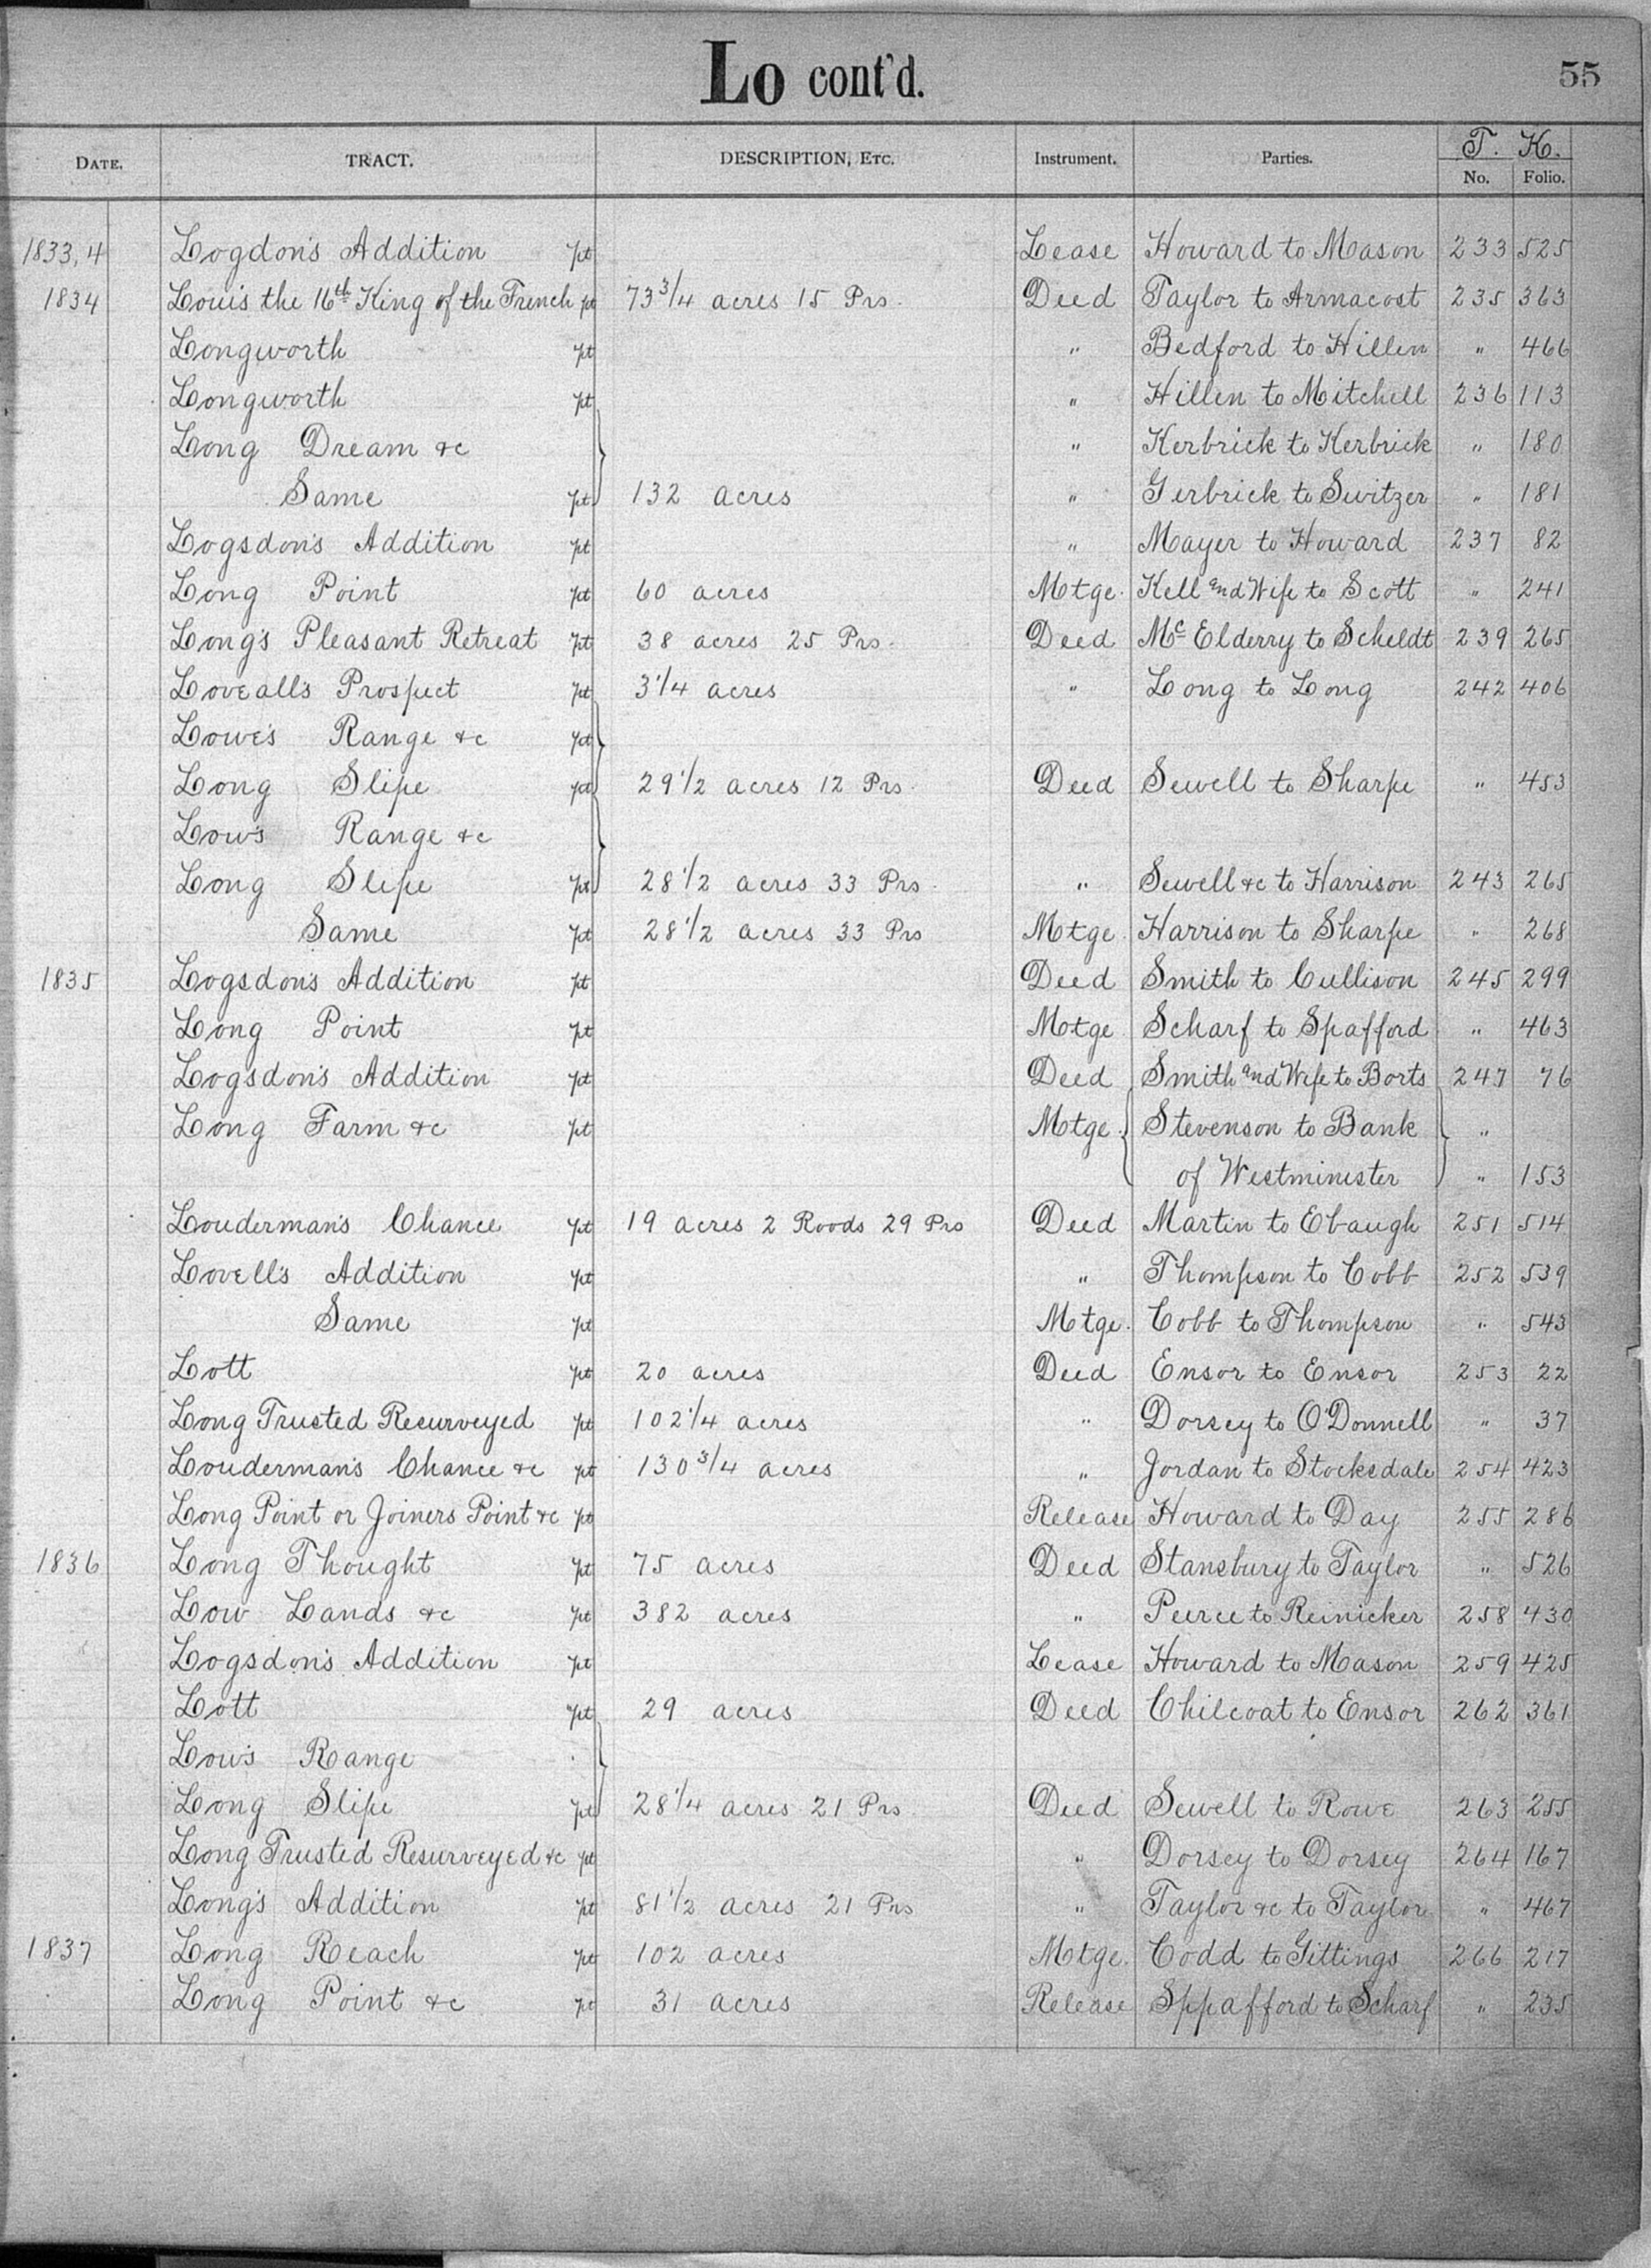 Lo cont'd.
55
DATE. TRACT. DESCRIPTION, ETC. Instrument. Parties. T. K.
No. Folio.
1833,4 Logdon's Addition pt Lease Howard to Mason 233 525
1834 Louis the 16th King of the French pt 73 3/4 acres 15 Prs. Deed Taylor to Armacost 235 363
Longworth pt " Bedford to Hillen " 466
Longworth pt " Hillen to Mitchell 236 113
Long Dream &c " Kerbrick to Kerbrick " 180
Same pt 132 acres " Gerbrick to Switzer " 181
Logsdon's Addition pt " Mayer to Howard 237 82
Long Point pt 60 acres Motge. Kell and Wife to Scott " 241
Long's Pleasant Retreat pt 38 acres 25 Prs. Deed Mc Elderry to Scheldt 239 265
Loveall's Prospect pt 3 1/4 acres " Long to Long 242 406
Lowe's Range &c pt
Long Slipe pt 29 1/2 acres 12 Prs. Deed Sewell to Sharpe " 453
Low's Range &c
Long Slipe pt 28 1/2 acres 33 Prs. " Sewell &c to Harrison 243 265
Same pt 28 1/2 acres 33 Prs Motge. Harrison to Sharpe " 268
1835 Logsdon's Addition pt Deed Smith to Cullison 245 299
Long Point pt Motge. Scharf to Spafford " 463
Logsdon's Addition pt Deed Smith and Wife to Borts 247 76
Long Farm &c pt Motge. Stevenson to Bank "
of Westminister " 153
Louderman's Chance pt 19 acres 2 Roods 29 Prs Deed Martin to Ebaugh 251 514
Lovell's Addition pt " Thompson to Cobb 252 539
Same pt Motge. Cobb to Thompson " 543
Lott pt 20 acres Deed Ensor to Ensor 253 22
Long Trusted Resurveyed pt 102 1/4 acres " Dorsey to O'Donnell " 37
Louderman's Chance &c pt 130 3/4 acres " Jordan to Stocksdale 254 423
Long Point or Joiners Point &c pt Release Howard to Day 255 286
1836 Long Thought pt 75 acres Deed Stansbury to Taylor " 526
Low Lands &c pt 382 acres " Peirce to Reinicker 258 430
Logsdon's Addition pt Lease Howard to Mason 259 425
Lott pt 29 acres Deed Chilcoat to Ensor 262 361
Low's Range
Long Slipe pt 28 1/4 acres 21 Prs. Deed Sewell to Rowe 263 255
Long Trusted Resurveyed &c pt " Dorsey to Dorsey 264 167
Long's Addition pt 81 1/2 acres 21 Prs " Taylor &c to Taylor " 467
1837 Long Reach pt 102 acres Motge. Codd to Gittings 266 217
Long Point &c pt 31 acres Release Sppafford to Scharf " 235